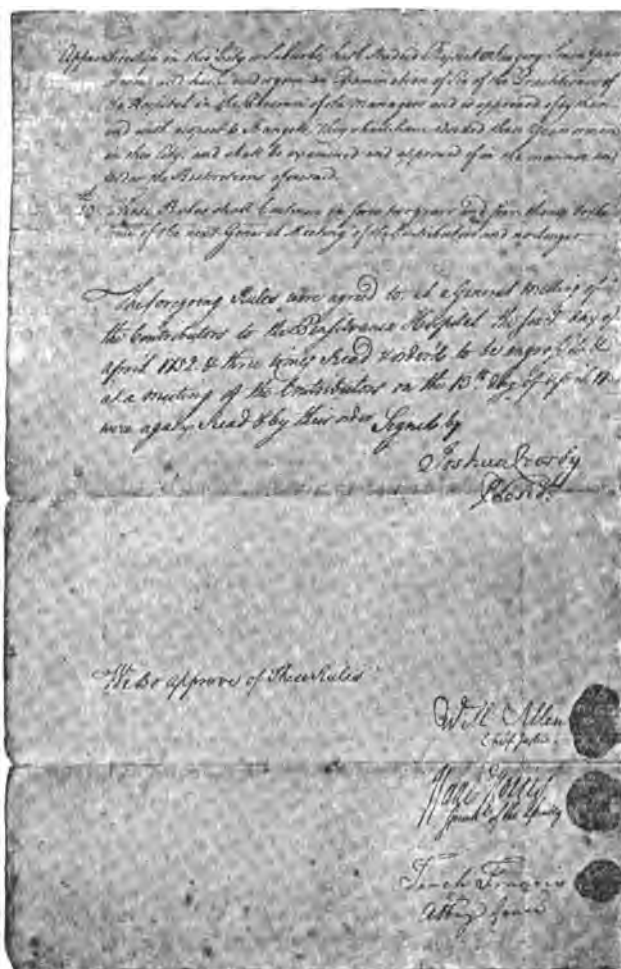 Apprenticeship in this City or Suburbs, hath Studied Physick or Surgery Seven Years
or more and hath undergone an Examination of Six of the Practitioners of
the Hospital in the Presence of the Managers and is approved of by them
and with respect to Strangers, they shall have resided three Years or more
in this City, and shall be examined and approved of in the manner and
under the Restrictions aforesaid.
These Rules shall Continue in force two years and from thence to the
time of the next General Meeting of the Contributors and no longer
The foregoing Rules were agreed to, at a General Meeting of
the Contributors to the Hospital the day of
april 1752 & three times Read & order'd to be engross'd &
at a meeting of the Contributors on the 13th day of
were again Read & by their order Signed by
Joshua Crosby
Presidt.
We Do approve of These Rules
Will Allen
Chief Justice
of the
Tench Francis